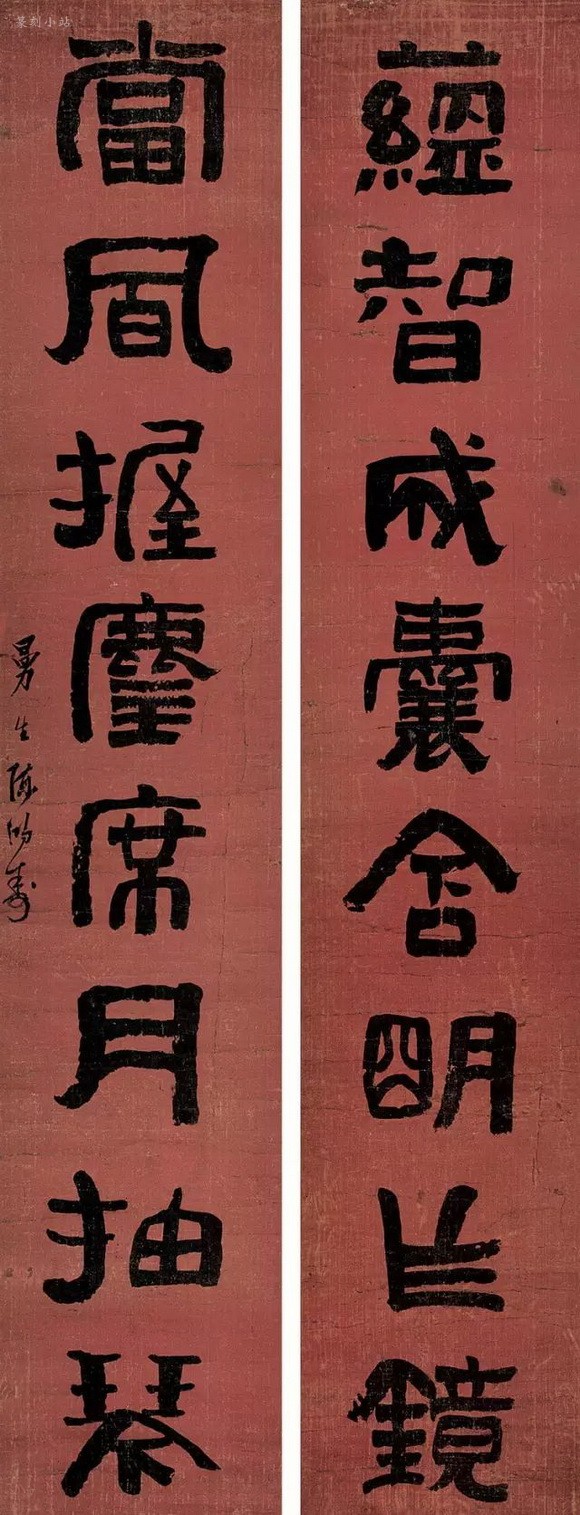 蘊智成囊含明作鏡
當風握麈席月抽琴
曼生陳鴻壽
篆刻小站